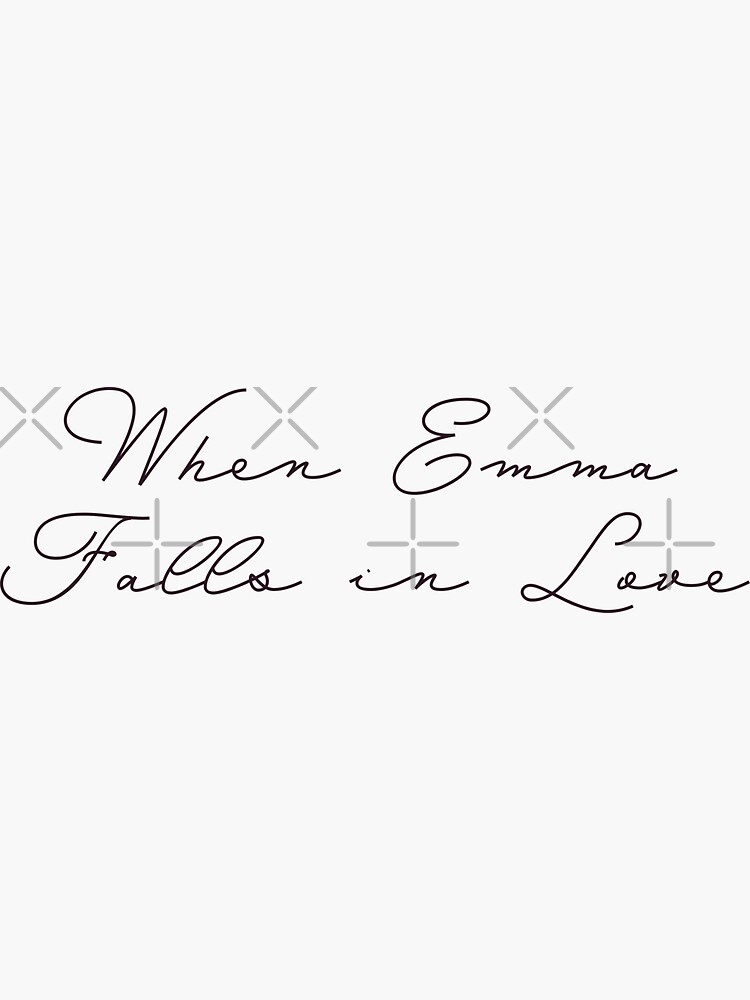 When Emma
Falls in Love